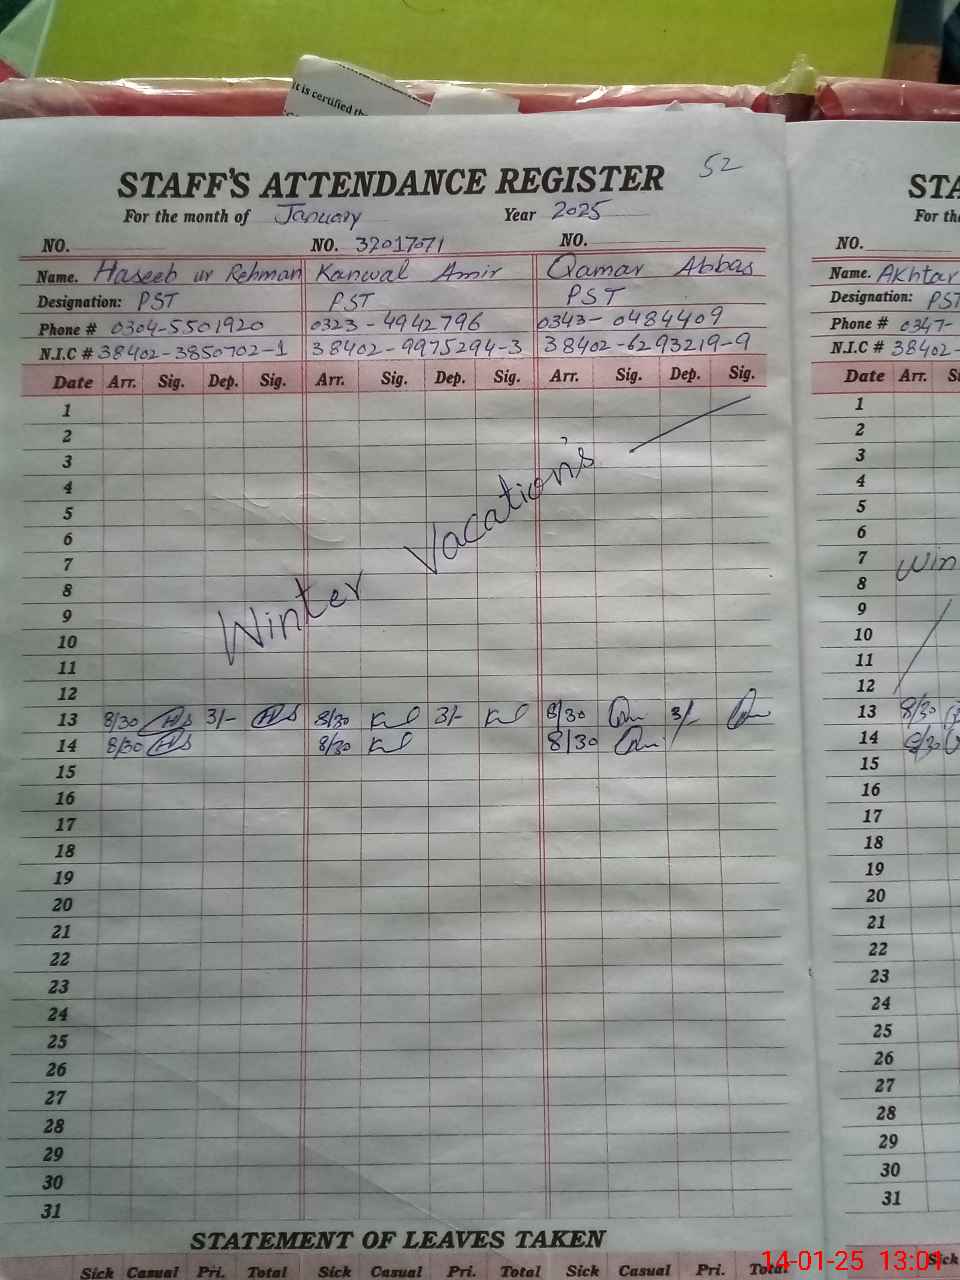 It is certified th
STAFF'S ATTENDANCE REGISTER 52
For the month of January Year 2025
NO. NO. 32017071 NO.
Name. Haseeb ur Rehman Kanwal Amir Qamar Abbas
Designation: PST PST PST
Phone # 0304-5501920 0323-4942796 0343-0484409
N.I.C # 38402-3850702-1 38402-9975294-3 38402-6293219-9
Date Arr. Sig. Dep. Sig. Arr. Sig. Dep. Sig. Arr. Sig. Dep. Sig.
1
2
3
4
5
6
7
8
9
10
11
12
Winter Vacation's
13 8/30 3/- 8/30 3/- 8/30 3/-
14 8/30 8/30 8/30
15
16
17
18
19
20
21
22
23
24
25
26
27
28
29
30
31
STATEMENT OF LEAVES TAKEN
Sick Casual Pri. Total Sick Casual Pri. Total Sick Casual Pri. Total
STA
For th
NO.
Name. Akhtar
Designation: PST
Phone # 0347-
N.I.C # 38402-
Date Arr. Si
1
2
3
4
5
6
7
Win
8
9
10
11
12
13 8/30
14 8/30
15
16
17
18
19
20
21
22
23
24
25
26
27
28
29
30
31
Sick
14-01-25 13:01